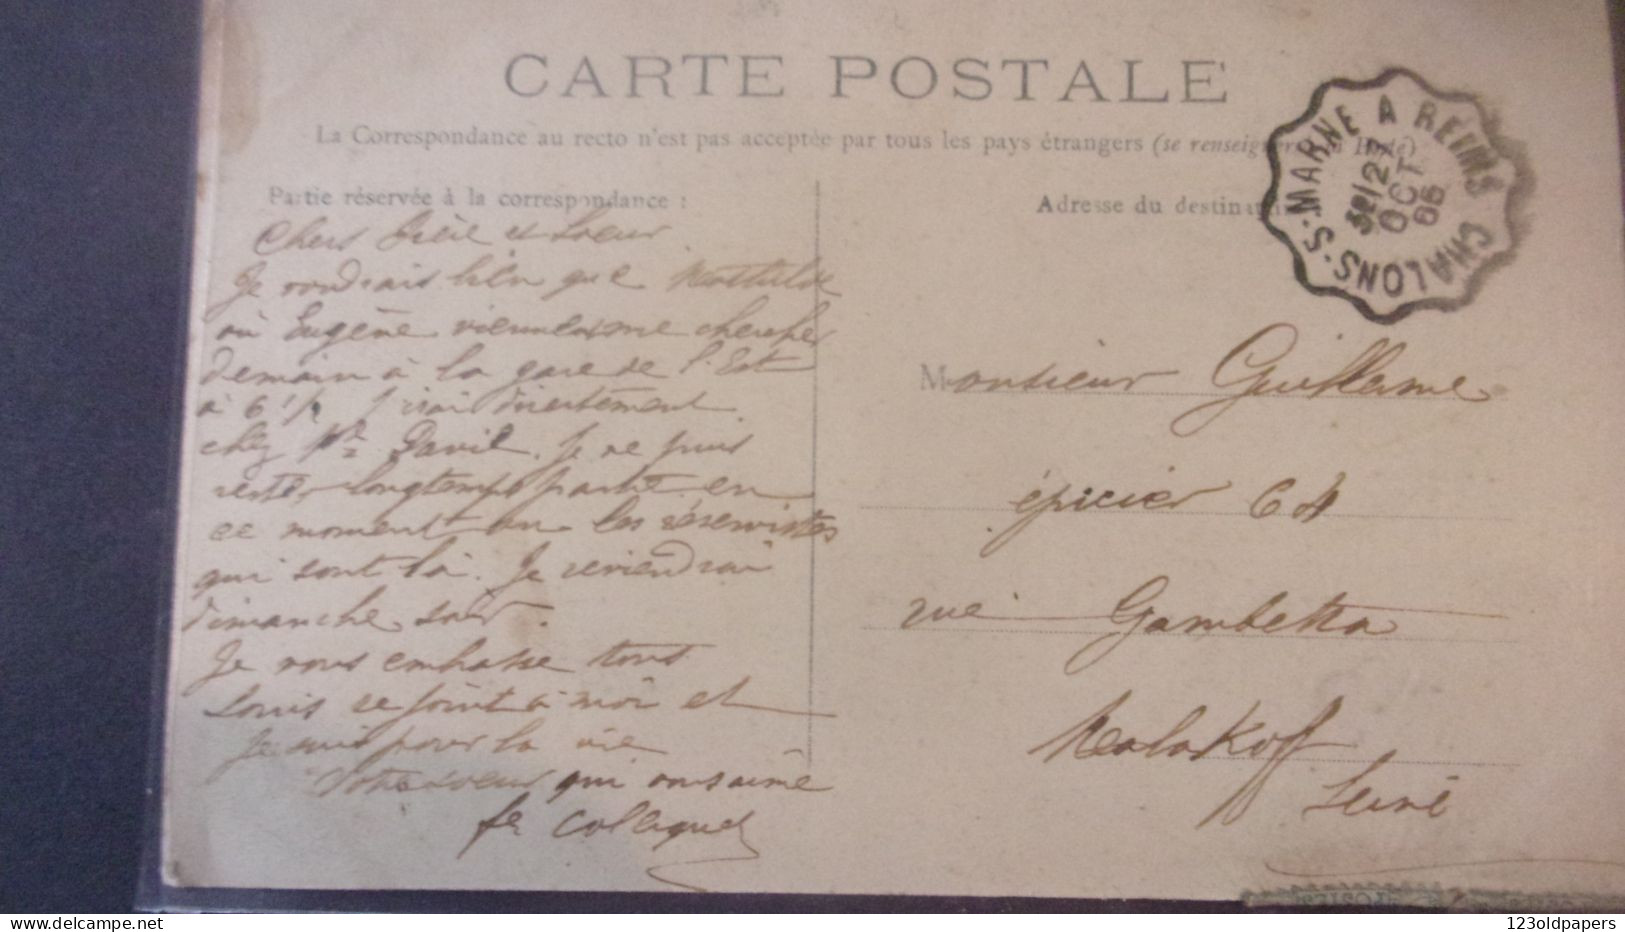 CARTE POSTALE
La Correspondance au recto n'est pas acceptée par tous les pays étrangers (se renseigner à la Poste)
Partie réservée à la correspondance :
Adresse du destinat
CHALONS-S-MARNE A REIMS
OCT
06
Chers frère et Soeur
Je voudrais bien que Mathilde
ou Eugène viennlasme chercher
demain à la gare de l'Est
à 6 1/2 J'irai directement
chez Mr David. Je ne puis
rester longtemps partit en
ce moment on les réservistes
qui sont là. Je reviendrai
dimanche soir.
Je vous embrasse tous
Louis se joint à moi et
Je suis pour la vie
Votre soeur qui vous aime
fe Collequet
Monsieur Guillaume
épicier 64
rue Gambetta
Malakoff
Seine
123oldpapers